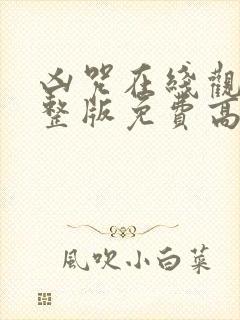 凶咒在綫觀
整版免費高
風吹小白菜